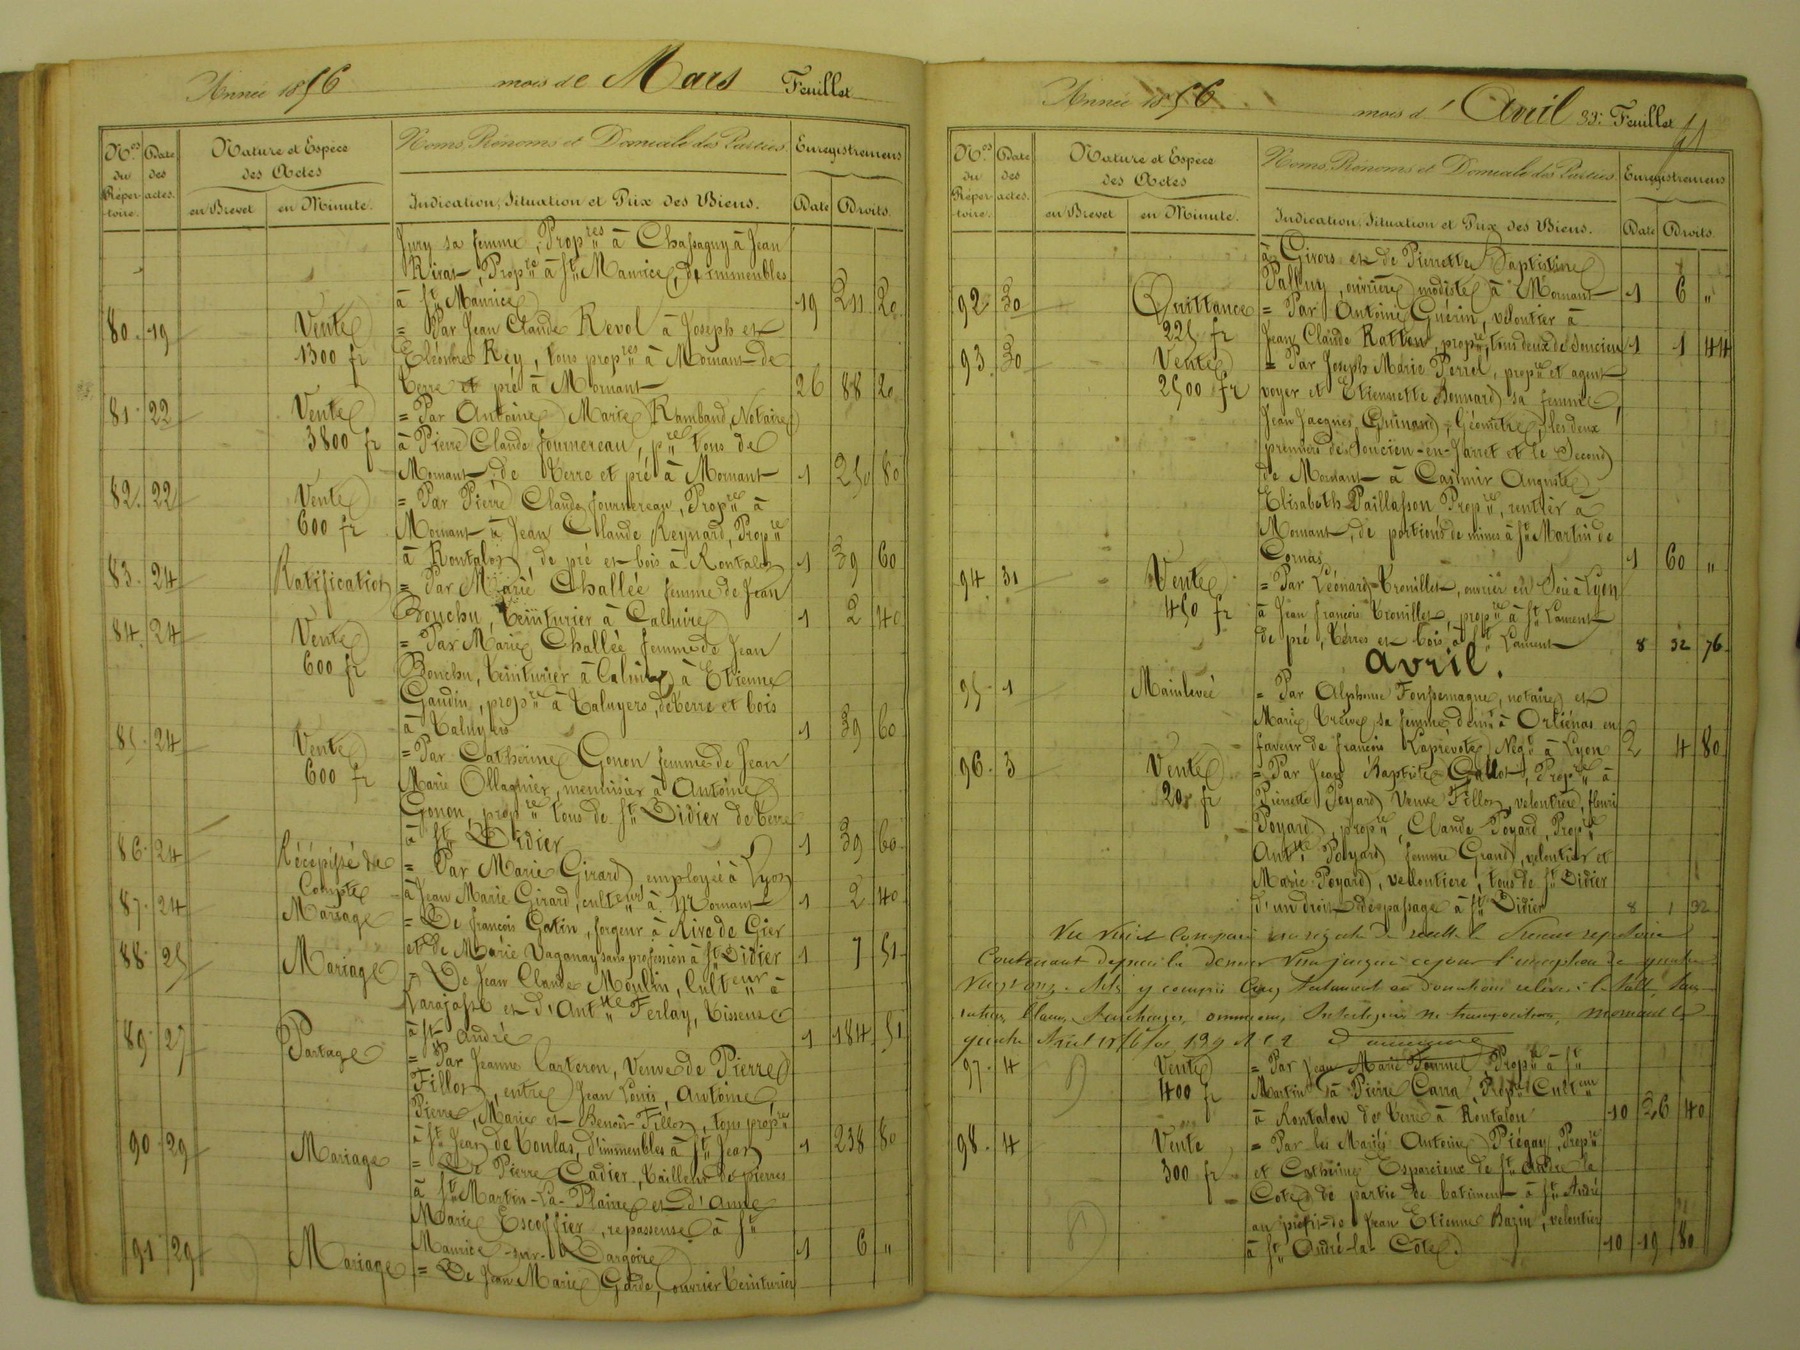 Année 1856 mois de Mars Feuillet
Nos du Réper-toire. Date des actes. Nature et Espèce des Actes Noms, Prénoms et Domicile des Parties. Enregistremens
en Brevet en Minute. Indication, Situation et Prix des Biens. Date Droits.
Jury sa femme, Propres à Chassagny à Jean
Rivat, Propre à St Maurice, de immeubles
à St Maurice 19 211 20
80. 19 Vente = Par Jean Claude Revol à Joseph et
1300 fr Eléonore Rey, tous propres à Mornant de
terre et pré à Mornant 26 88 20
81. 22 Vente = Par Antoine Marie Rambaud, Notaire
3800 fr à Pierre Claude fournereau, pre tous de
Mornant, de terre et pré à Mornant 1 250 80
82. 22 Vente = Par Pierre Claude fournereau, Propre à
600 fr Mornant à Jean Claude Reynard, Propre
à Rontalon, de pré et bois à Rontalon 1 39 60
83. 24 Ratification = Par Marie Challée femme de Jean
Bonchu, teinturier à Caluire 1 2 40
84. 24 Vente = Par Marie Challée femme de Jean
600 fr Bonchu, teinturier à à Etienne
Gaudin, propre à Taluyers, de terre et bois
à Taluyers 1 39 60
85. 24 Vente = Par Catherine Gonon femme de Jean
600 fr Marie Ollagnier, menuisier à Antoine
Gonon, propre tous de St Didier de terre
à St Didier 1 39 60
86. 24 Récépissé de = Par Marie Girard employée à Lyon
Compte à Jean Marie Girard, culteur à Mornant 1 2 40
87. 24 Mariage = De françois Gatin, forgeur à Rive de Gier
et de Marie Vaganay sans profession à St Didier 1 7 51
88. 25 Mariage = De Jean Claude Moulin, Culteur à
et d'Antte Ferlay, tisseuse
à St André 1 184 51
89. 27 Partage = Par Jeanne Carteron, Veuve de Pierre
Fillon, entre Jean Louis, Antoine,
Pierre, Marie et Benoît Fillon, tous propres
à St Jean de Toulas, d'immeubles à St Jean 1 238 80
90. 29 Mariage = De Pierre Cadier, tailleur de pierres
à St Martin-La-Plaine et d'Anne
Marie Escoffier, repasseuse à St
Maurice-sur-Dargoire 1 6 "
91. 29 Mariage = De Jean Marie Garde, ouvrier teinturier
Année 1856 mois d'Avril 33. Feuillet
Nos du Réper-toire. Date des actes. Nature et Espèce des Actes Noms, Prénoms et Domicile des Parties. Enregistremens
en Brevet en Minute. Indication, Situation et Prix des Biens. Date Droits.
à Givors et de Pierrette Baptistine
ouvrière modiste à Mornant 1 6 "
92. 30 Quittance = Par Antoine Guérin, veloutier à
225 fr Jean Claude Ratton, propre, tous deux de Soucieu 1 1 44
93. 30 Vente = Par Joseph Marie Perrel, propre et agent
2500 fr voyer et Etiennette Bonnard sa femme,
Jean Jacques Guinand, Géomètre, les deux
premiers de Soucieu-en-Jarret et le Second
de Mornant à Casimir
Elisabeth Paillasson Propre, rentier à
Mornant, de portions de mines à St Martin de
Cornas 1 60 "
94. 31 Vente = Par Léonard Trouillet, ouvrier en Soie à Lyon
450 fr à Jean françois Trouillet, propre à St Laurent
de pré, terres et bois à St Laurent 8 32 76
avril.
95. 1 Mainlevée = Par Alphonse Fonssemagne, notaire et
Marie Trève, sa femme demt à Orliénas en
faveur de françois Laprévote, Négt à Lyon 2 4 80
96. 3 Vente = Par Jean Baptiste Propre à
20 fr Pierrette Poyard Veuve Fillon, veloutière, fleuri
Poyard, propre, Claude Poyard, Propre
Antte Poyard femme Grand, veloutier et
Marie Poyard, veloutière, tous de St Didier
d'un droit de passage à St Didier 8 1 32
Vu de recette le présent répertoire
Contenant depuis le dernier Visa jusqu'à ce jour l'inscription de quatre
y compris Cinq testaments ou donations
blancs, surcharges, ni transposition, Mornant le
quatre Avril
97. 4 Vente = Par Jean Marie Propre à St
400 fr Martin à Pierre Propre Culteur
à Rontalon de Terre à Rontalon 10 26 40
98. 4 Vente = Par les Mariés Antoine Piégay, Propre
300 fr et Catherine Esparcieux de St André la
Côte, de partie de batiment à St André
au profit de Jean Etienne Bazin, veloutier
à St André-la-Côte. 10 19 80